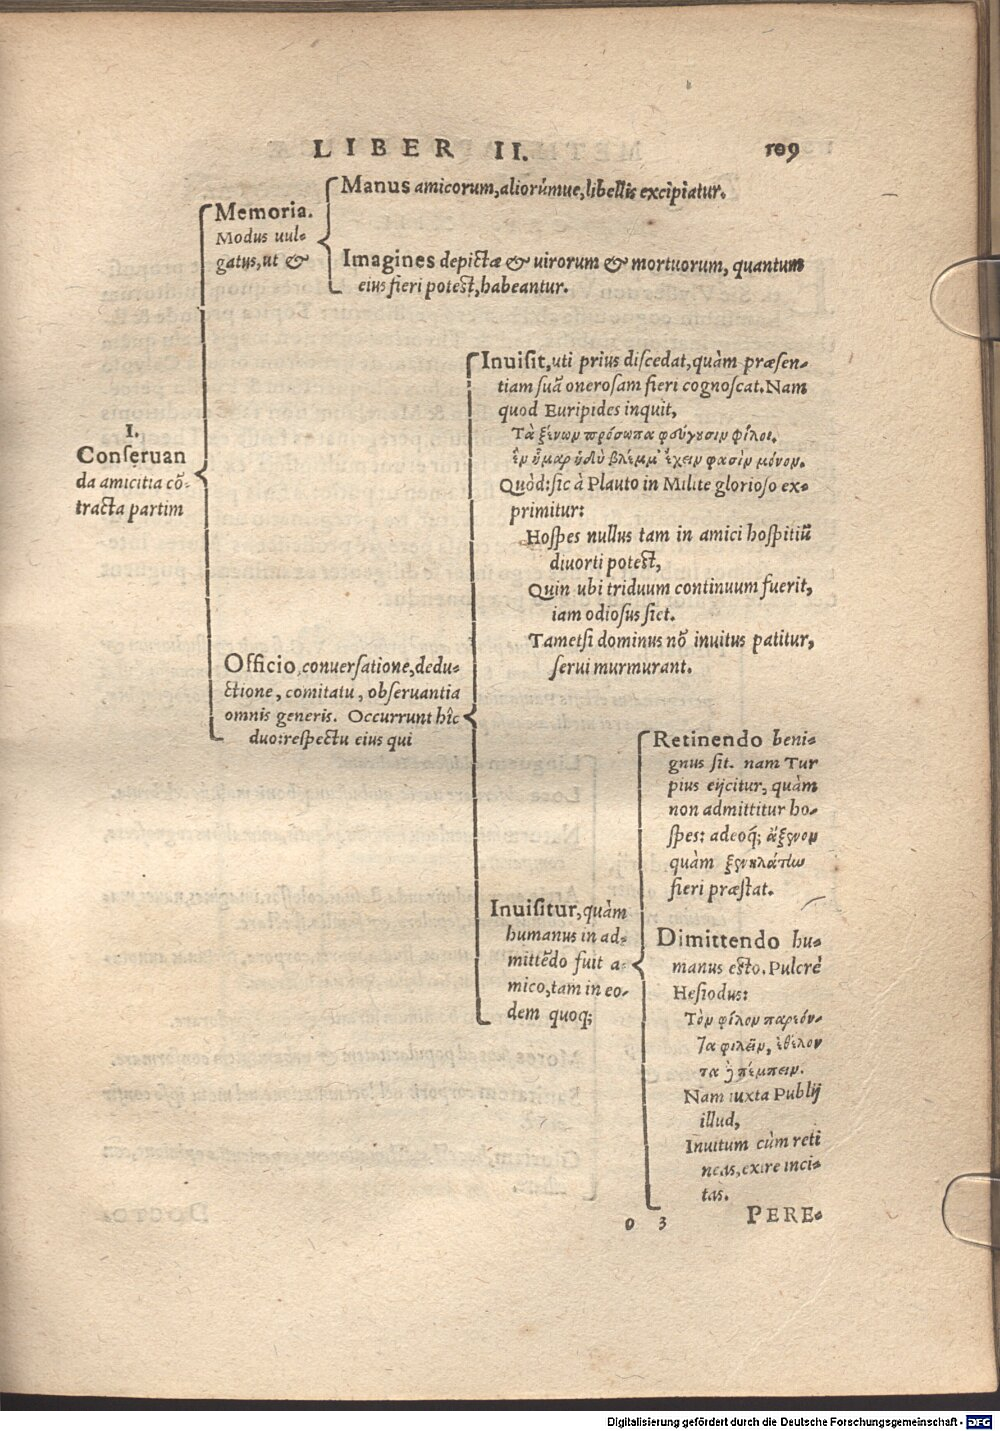 LIBER II. 109
Manus amicorum, aliorúmue, libellis excipiatur.
Memoria.
Modus uul-
gatus, ut &
Imagines depictæ & uirorum & mortuorum, quantum
eius fieri potest, habeantur.
I.
Conseruan
da amicitia cõ-
tracta partim
Officio, conuersatione, dedu-
ctione, comitatu, obseruantia
omnis generis. Occurrunt hîc
duo: respectu eius qui
Inuisit, uti prius discedat, quàm præsen-
tiam suã onerosam fieri cognoscat. Nam
quod Euripides inquit,
Τὰ ξένων πρόσωπα φεύγουσιν φίλοι.
ἓν ἦμαρ ἡδὺ βλέμμ' ἔχειν φασὶν μόνον.
Quòd: sic à Plauto in Milite glorioso ex-
primitur:
Hospes nullus tam in amici hospitiũ
diuorti potest,
Quin ubi triduum continuum fuerit,
iam odiosus siet.
Tametsi dominus nõ inuitus patitur,
serui murmurant.
Inuisitur, quàm
humanus in ad-
mittẽdo fuit a-
mico, tam in eo-
dem quoq;
Retinendo beni-
gnus sit. nam Tur
pius eijcitur, quàm
non admittitur ho-
spes: adeoq; ἄξενον
quàm ξενηλάτην
fieri præstat.
Dimittendo hu-
manus esto. Pulcrè
Hesiodus:
Τὸν φίλον παρεόν-
τα φιλεῖν, ἐθέλον
τα ἢ πέμπειν.
Nam iuxta Publij
illud,
Inuitum cùm reti
neas, exire inci-
tas.
o 3 PERE-
Digitalisierung gefördert durch die Deutsche Forschungsgemeinschaft - DFG